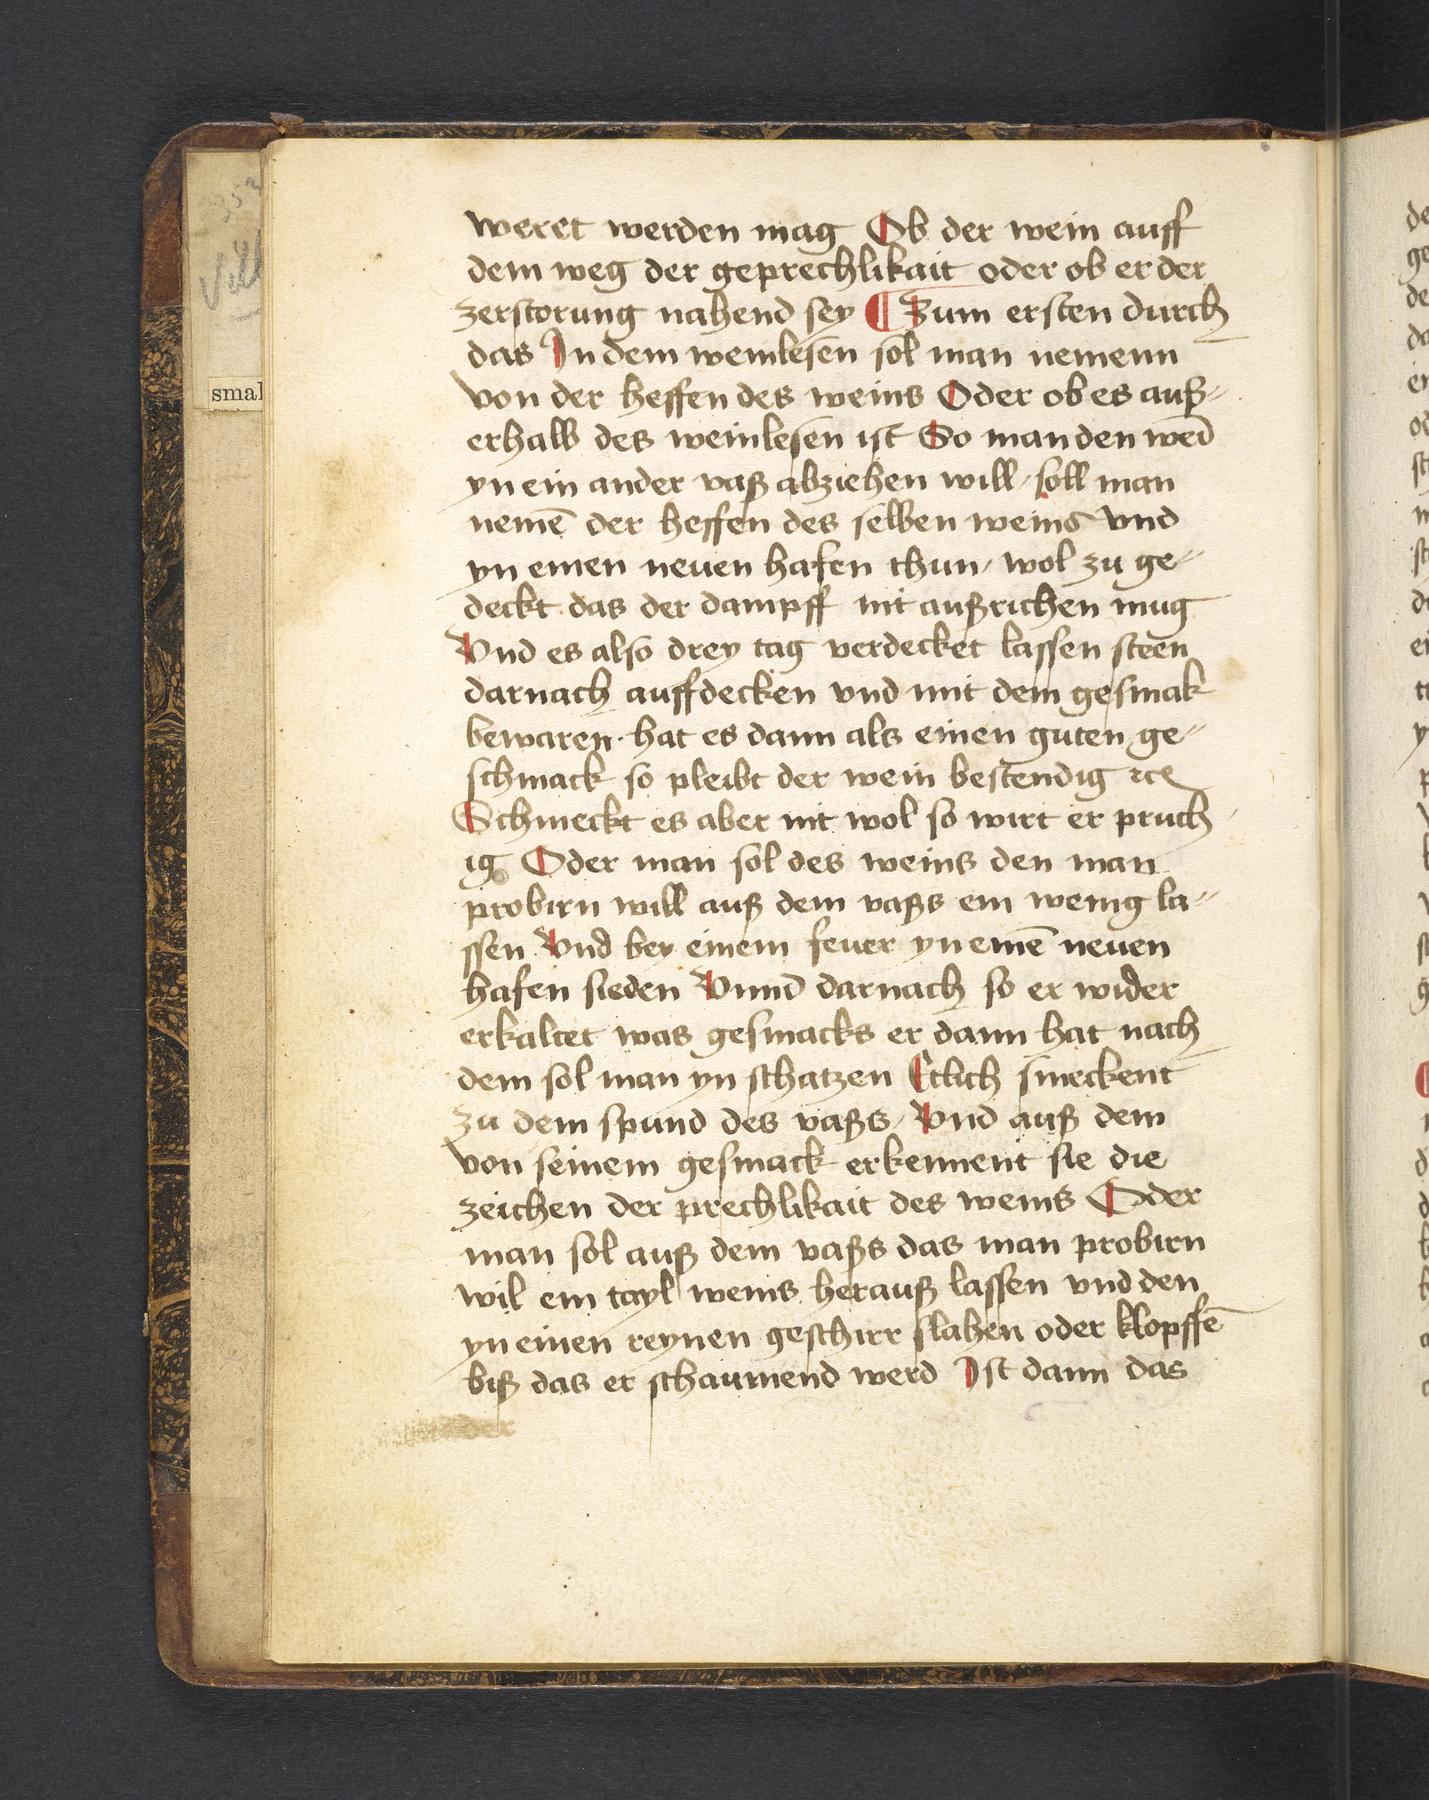 weret werden mag Ob der wein auff
dem weg der geprechlikait oder ob er der
zerstorung nahend sey ¶ Zum ersten durch
das In dem weinlesen sol man nemenn
von der heffen des weins Oder ob es auß⸗
erhalb des weinlesen ist So man den wein
yn ein ander vaß abziehen will / soll man
nemē der heffen des selben weins vnd
yn einen neuen hafen thun / wol zu ge⸗
deckt das der dampff nit außrichen mug
Vnd es also drey tag verdecket lassen steen
darnach auffdecken vnd mit dem gesmak
bewaren · hat es dann als einen guten ge⸗
schmack so pleibt der wein bestendig ꝛc
Schmeckt es aber nit wol so wirt er pruch⸗
ig Oder man sol des weins den man
probirn will auß dem vaßs ein wenig la⸗
ssen Vnd bey einem feuer yn einē neuen
hafen sieden Vnnd darnach so er wider
erkaltet was gesmacks er dann hat nach
dem sol man yn schatzen Etlich smeckent
zu dem spund des vaßs / Vnd auß dem
von seinem gesmack erkennent sie die
zeichen der prechlikait des weins Oder
man sol auß dem vaßs das man probirn
wil ein tayl weins herauß lassen vnd den
yn einen reynen geschirr slahen oder klopffē
biß das er schaumend werd Ist dann das
smal